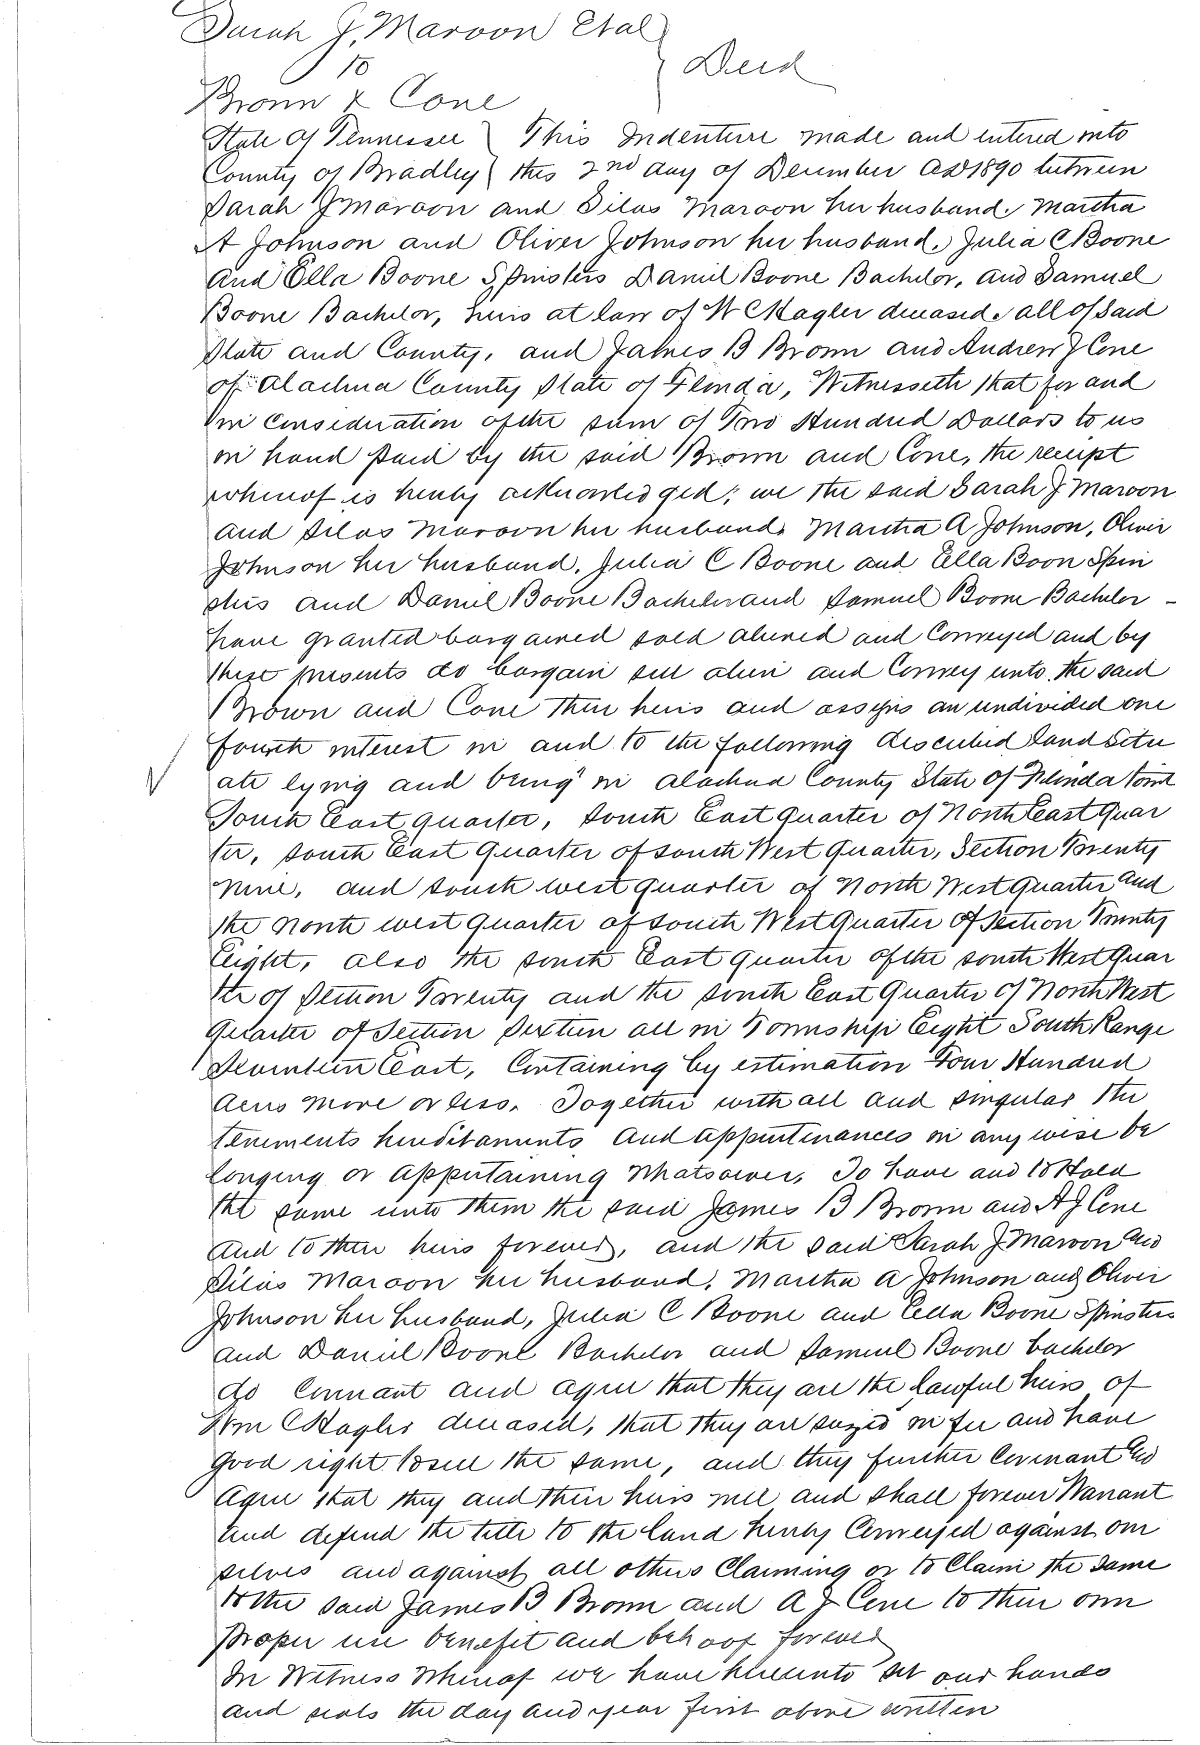 Sarah J. Maroon Etal
to
Deed
Brown & Cone
State of Tennessee } This Indenture made and entered into
County of Bradley } this 2nd day of December AD 1890 between
Sarah J Maroon and Silas Maroon her husband. Martha
A Johnson and Oliver Johnson her husband, Julia C Boone
and Ella Boone Spinsters Daniel Boone Bachelor, and Samuel
Boone Bachelor, heirs at law of W C Hagler deceased. all of said
State and County, and James B Brown and Andrew J Cone
of Alachua County State of Florida, Witnesseth that for and
in consideration of the sum of Two Hundred Dollars to us
in hand paid by the said Brown and Cone, the receipt
whereof is hereby acknowledged; we the said Sarah J Maroon
and Silas Maroon her husband. Martha A Johnson, Oliver
Johnson her husband. Julia C Boone and Ella Boon Spin
sters and Daniel Boone Bachelor and Samuel Boone Bachelor -
have granted bargained sold aliened and Conveyed and by
these presents do bargain sell alien and Convey unto the said
Brown and Cone their heirs and assigns an undivided one
fourth interest in and to the following described land situ
ate lying and being in Alachua County State of Florida
South East quarter, South East quarter of North East Quar
ter, South East Quarter of South West Quarter, Section Twenty
Nine, and South west quarter of North West Quarter and
the North west quarter of South West Quarter of Section Twenty
Eight, also the South East quarter of the South West Quar
ter of Section Twenty and the South East Quarter of North West
Quarter of Section Sixteen all in Township Eight South Range
Seventeen East, Containing by estimation Four Hundred
acres more or less. Together with all and singular the
tenements hereditaments and appurtenances in any wise be
longing or appertaining whatsoever, To have and to Hold
the same unto them the said James B Brown and A J Cone
and to their heirs forever, and the said Sarah J Maroon and
Silas Maroon her husband, Martha A Johnson and Oliver
Johnson her husband, Julia C Boone and Ella Boone Spinsters
and Daniel Boone Bachelor and Samuel Boone bachelor
do Covenant and agree that they are the lawful heirs of
Wm C Hagler deceased, that they are seized in fee and have
good right to sell the same, and they further Covenant and
agree that they and their heirs will and shall forever Warrant
and defend the title to the land hereby Conveyed against our
selves and against all others Claiming or to Claim the same
to the said James B Brown and A J Cone to their own
proper use benefit and behoof forever
In Witness Whereof we have hereunto set our hands
and seals the day and year first above written